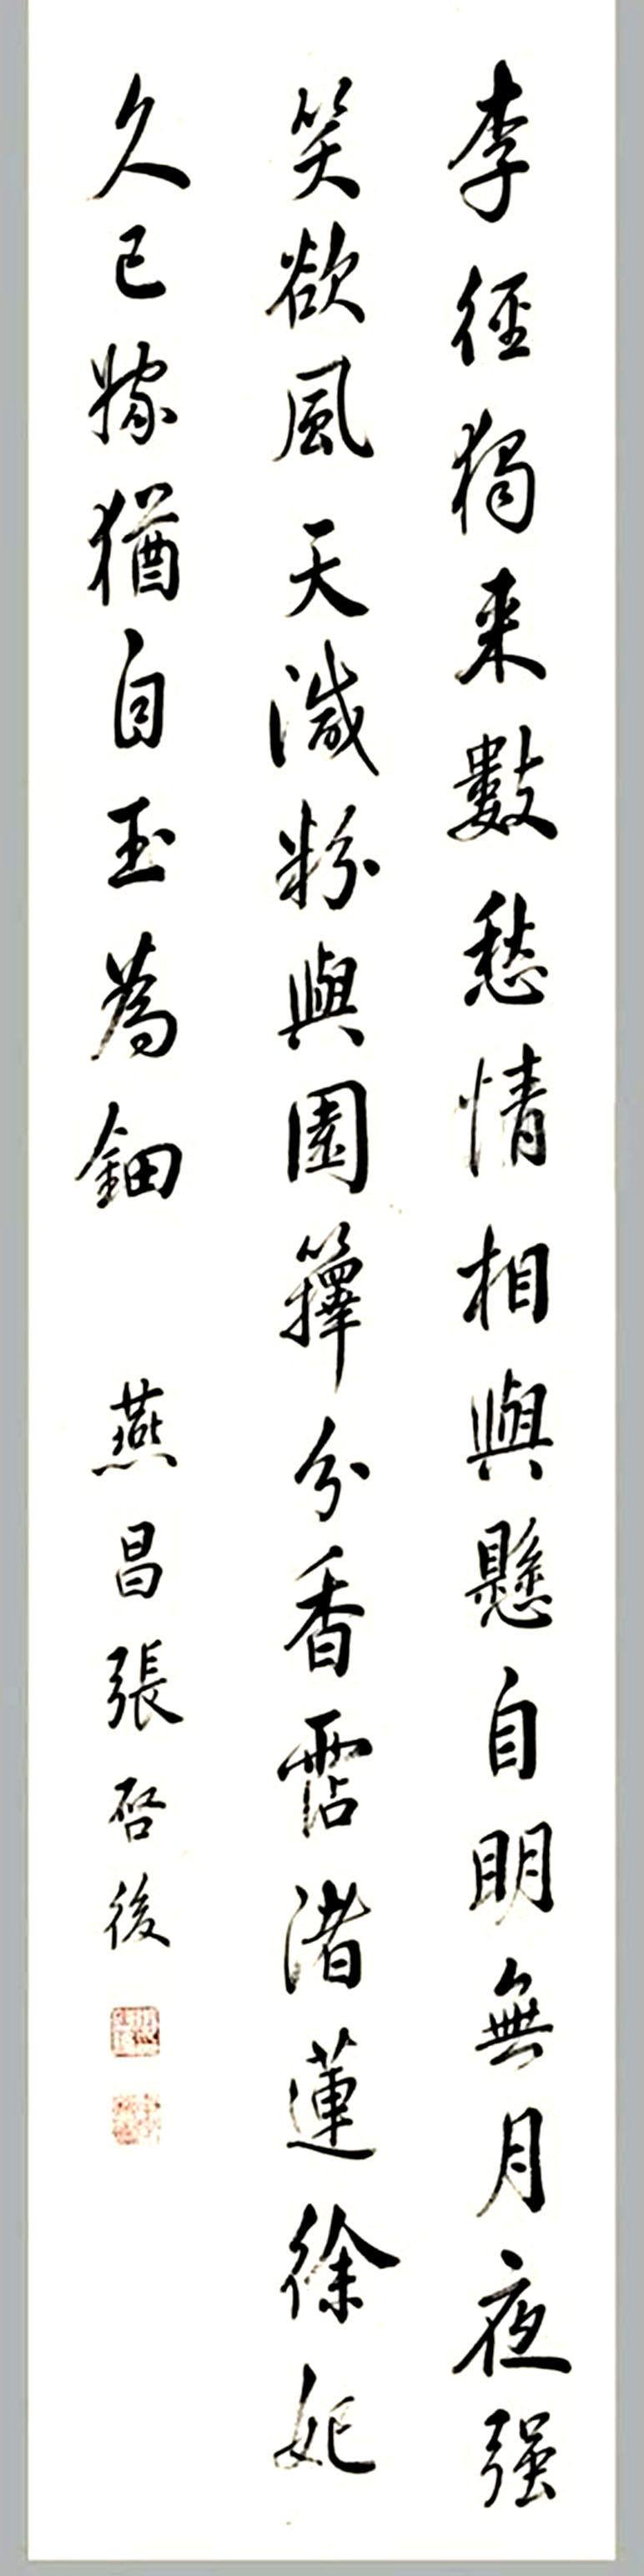 李徑獨來數愁情相與懸自明無月夜强
笑欲風天減粉與園籜分香霑渚蓮徐妃
久已嫁猶自玉為鈿
燕昌張啓後